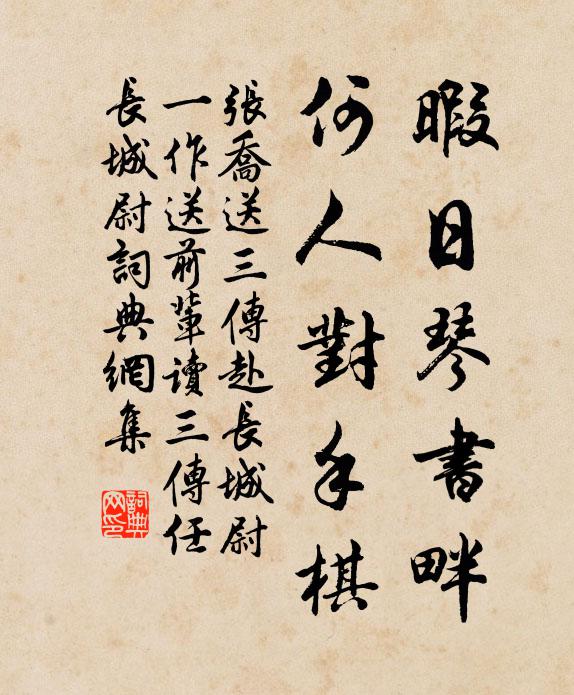 暇日琴書畔
何人對手棋
張喬送三傳赴長城尉
一作送前輩讀三傳任
長城尉詞典網集
詞典网印